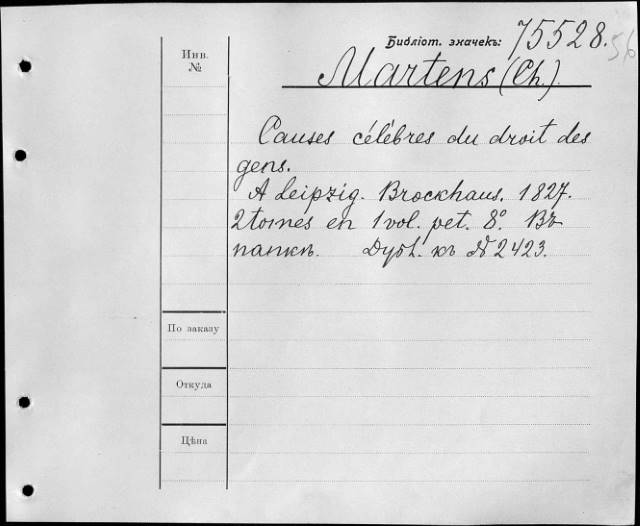 Библіот. значекъ: 75528.
56
Инв.
№
Martens (Ch.)
Causes célèbres du droit des
gens.
A Leipzig. Brockhaus. 1827.
2 tomes en 1 vol. pet. 8º. Въ
папкѣ. Дубл. къ № 2423.
По заказу
Откуда
Цѣна